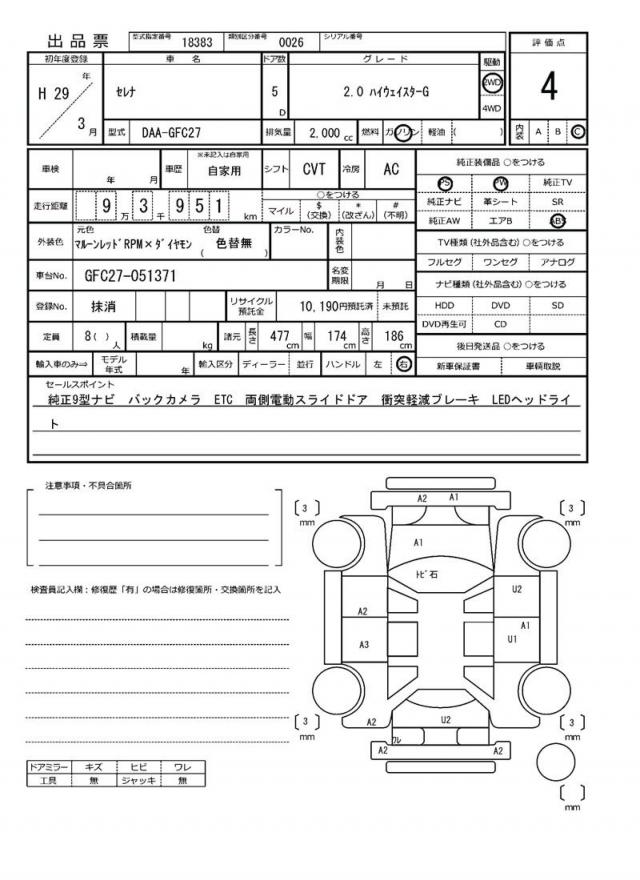 出品票 型式指定番号 18383 類別区分番号 0026 シリアル番号
初年度登録 車名 ドア数 グレード 駆動 評価点
H 29 年 3 月 セレナ 5 D 2.0 ハイウェイスターG 2WD 4WD 4
型式 DAA-GFC27 排気量 2,000 cc 燃料 ガソリン 軽油 ( ) 内装 A B C
車検 年 月 車歴 ※未記入は自家用 自家用 シフト CVT 冷房 AC
純正装備品 ○をつける
PS PW 純正TV
純正ナビ 革シート SR
純正AW エアB ABS
走行距離 9 万 3 千 9 5 1 km ○をつける マイル $ (交換) * (改ざん) # (不明)
外装色 元色 マルーンレッドRPM×ダイヤモン 色替 ( 色替無 ) カラーNo. 内装色
TV種類 (社外品含む) ○をつける
フルセグ ワンセグ アナログ
車台No. GFC27-051371 名変期限 月 日
ナビ種類 (社外品含む) ○をつける
HDD DVD SD
DVD再生可 CD
登録No. 抹消 リサイクル預託金 10,190円預託済 未預託
定員 8 ( ) 人 積載量 kg 諸元 長さ 477 cm 幅 174 cm 高さ 186 cm
後日発送品 ○をつける
新車保証書 車輌取説
輸入車のみ⇒ モデル年式 年 輸入区分 ディーラー 並行 ハンドル 左 右
セールスポイント
純正9型ナビ バックカメラ ETC 両側電動スライドドア 衝突軽減ブレーキ LEDヘッドライ
ト
注意事項・不具合箇所
検査員記入欄:修復歴「有」の場合は修復箇所・交換箇所を記入
A2 A1
[3] mm [3] mm
A1
トビ石
A2 U2
A1
A3 U1
A2 U2
[3] mm [3] mm
ワレ
A2 A2
[ ] mm
ドアミラー キズ ヒビ ワレ
工具 無 ジャッキ 無